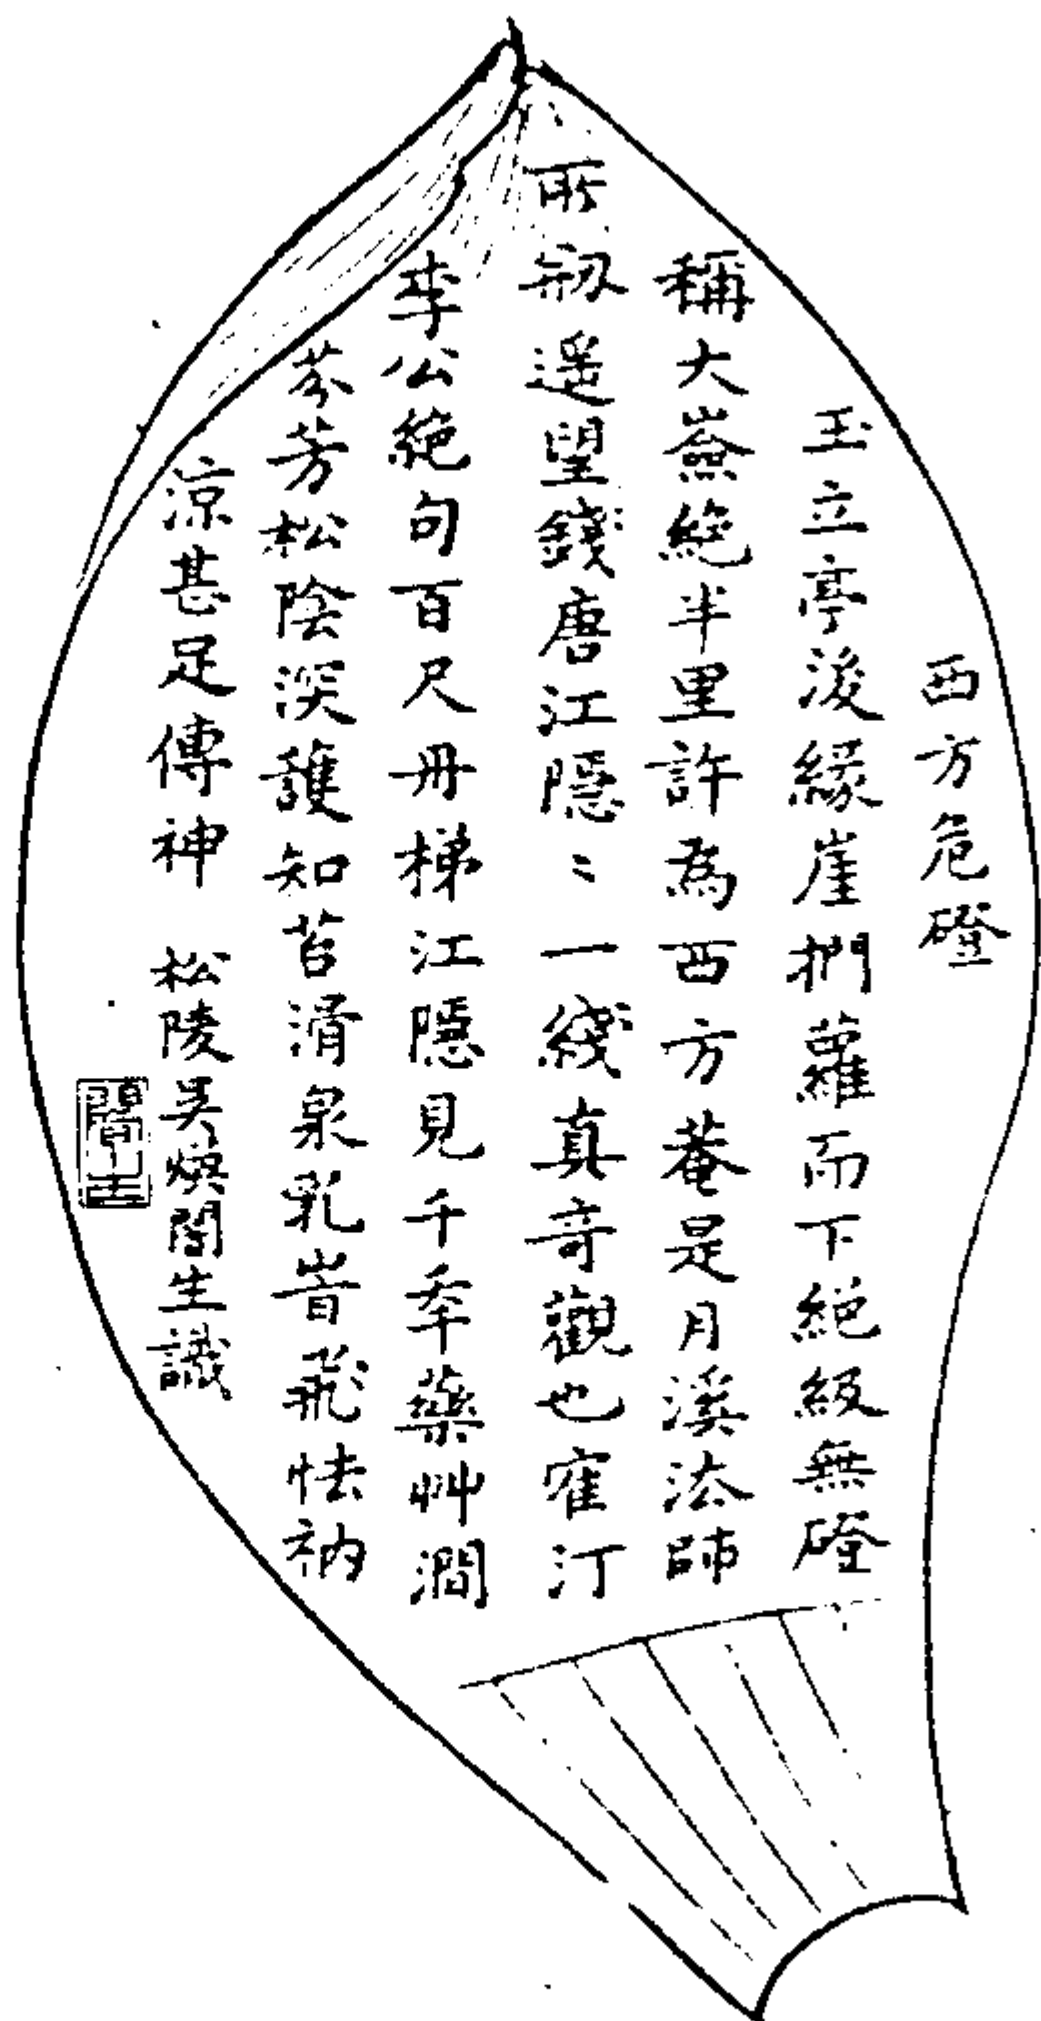 西方危磴
玉立亭後緣崖捫蘿而下絕級無磴
稱大嶮絕半里許為西方菴是月溪法師
所剏遥望錢唐江隱〻一綫真奇觀也寉汀
李公絕句百尺丹梯江隱見千秊藥艸澗
芬芳松陰深護知苔滑泉乳旹飛怯衲
涼甚足傳神 松陵吳煥閶生識